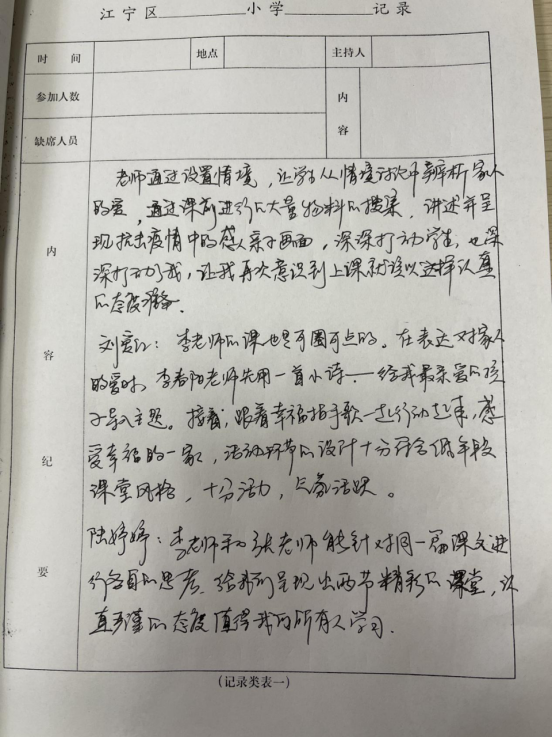 江宁区 小学 记录
时间 地点 主持人
参加人数 内容
缺席人员
内容纪要
老师通过设置情境，让学生从情境讨论中辨析家人
的爱，通过课前进行的大量物料的搜集，讲述并呈
现抗击疫情中的感人亲子画面，深深打动学生，也深
深打动了我，让我再次意识到上课就该以这样认真
的态度准备。
刘雪江：李老师的课也是可圈可点的。在表达对家人
的爱时，李春阳老师先用一首小诗——给我最亲爱的孩
子导入主题。接着，跟着幸福拍手歌一起行动起来，感
受幸福的一家，活动环节的设计十分符合低年段
课堂风格，十分活力，气氛活跃。
陆婷婷：李老师和张老师能针对同一篇课文进
行各自的思考，给我们呈现出两节精彩的课堂，认
真严谨的态度值得我们所有人学习。
(记录类表一)